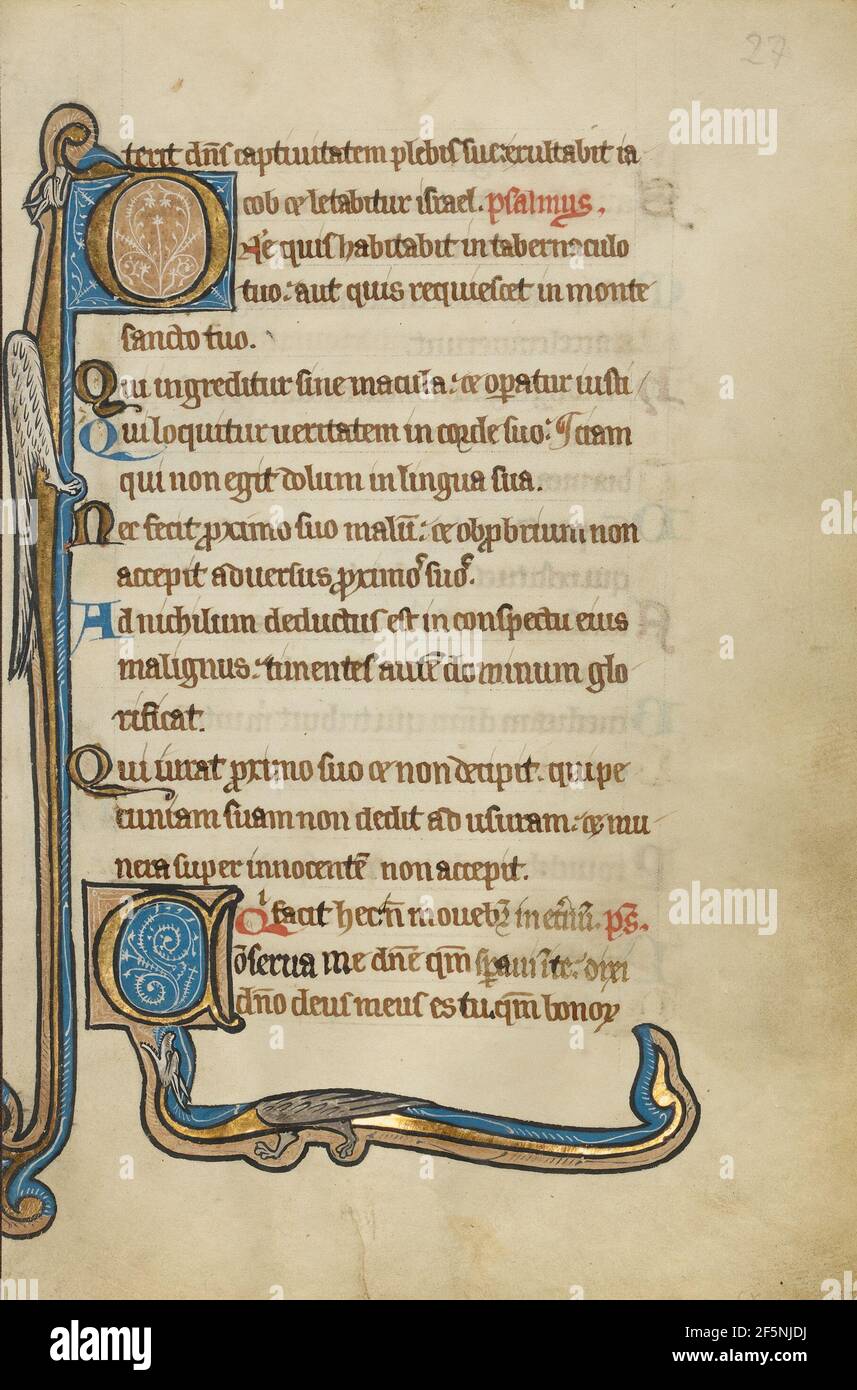 27
terit dn̄s captiuitatem plebis sue exultabit ia
cob ⁊ letabitur israel. psalmus.
Dn̄e quis habitabit in tabernaculo
tuo: aut quis requiescet in monte
sancto tuo.
Qui ingreditur sine macula: ⁊ oꝑatur iusti
Qui loquitur ueritatem in corde suo: ciam
qui non egit dolum in lingua sua.
Nec fecit ꝓximo suo malū: ⁊ obꝓbrium non
accepit aduersus ꝓximos suos.
Ad nichilum deductus est in conspectu eius
malignus: timentes autē dominum glo
rificat.
Qui iurat ꝓximo suo ⁊ non decipit. qui pe
cuniam suam non dedit ad usuram: ⁊ mu
nera super innocentē non accepit.
Qi facit hec n̄ mouebꝰ in et̄nū. ps̄.
Cōserua me dn̄e qm̄ sꝑaui in te: dixi
dn̄o deus meus es tu. qm̄ bonoꝝ
alamy
Image ID: 2F5NJDJ
www.alamy.com